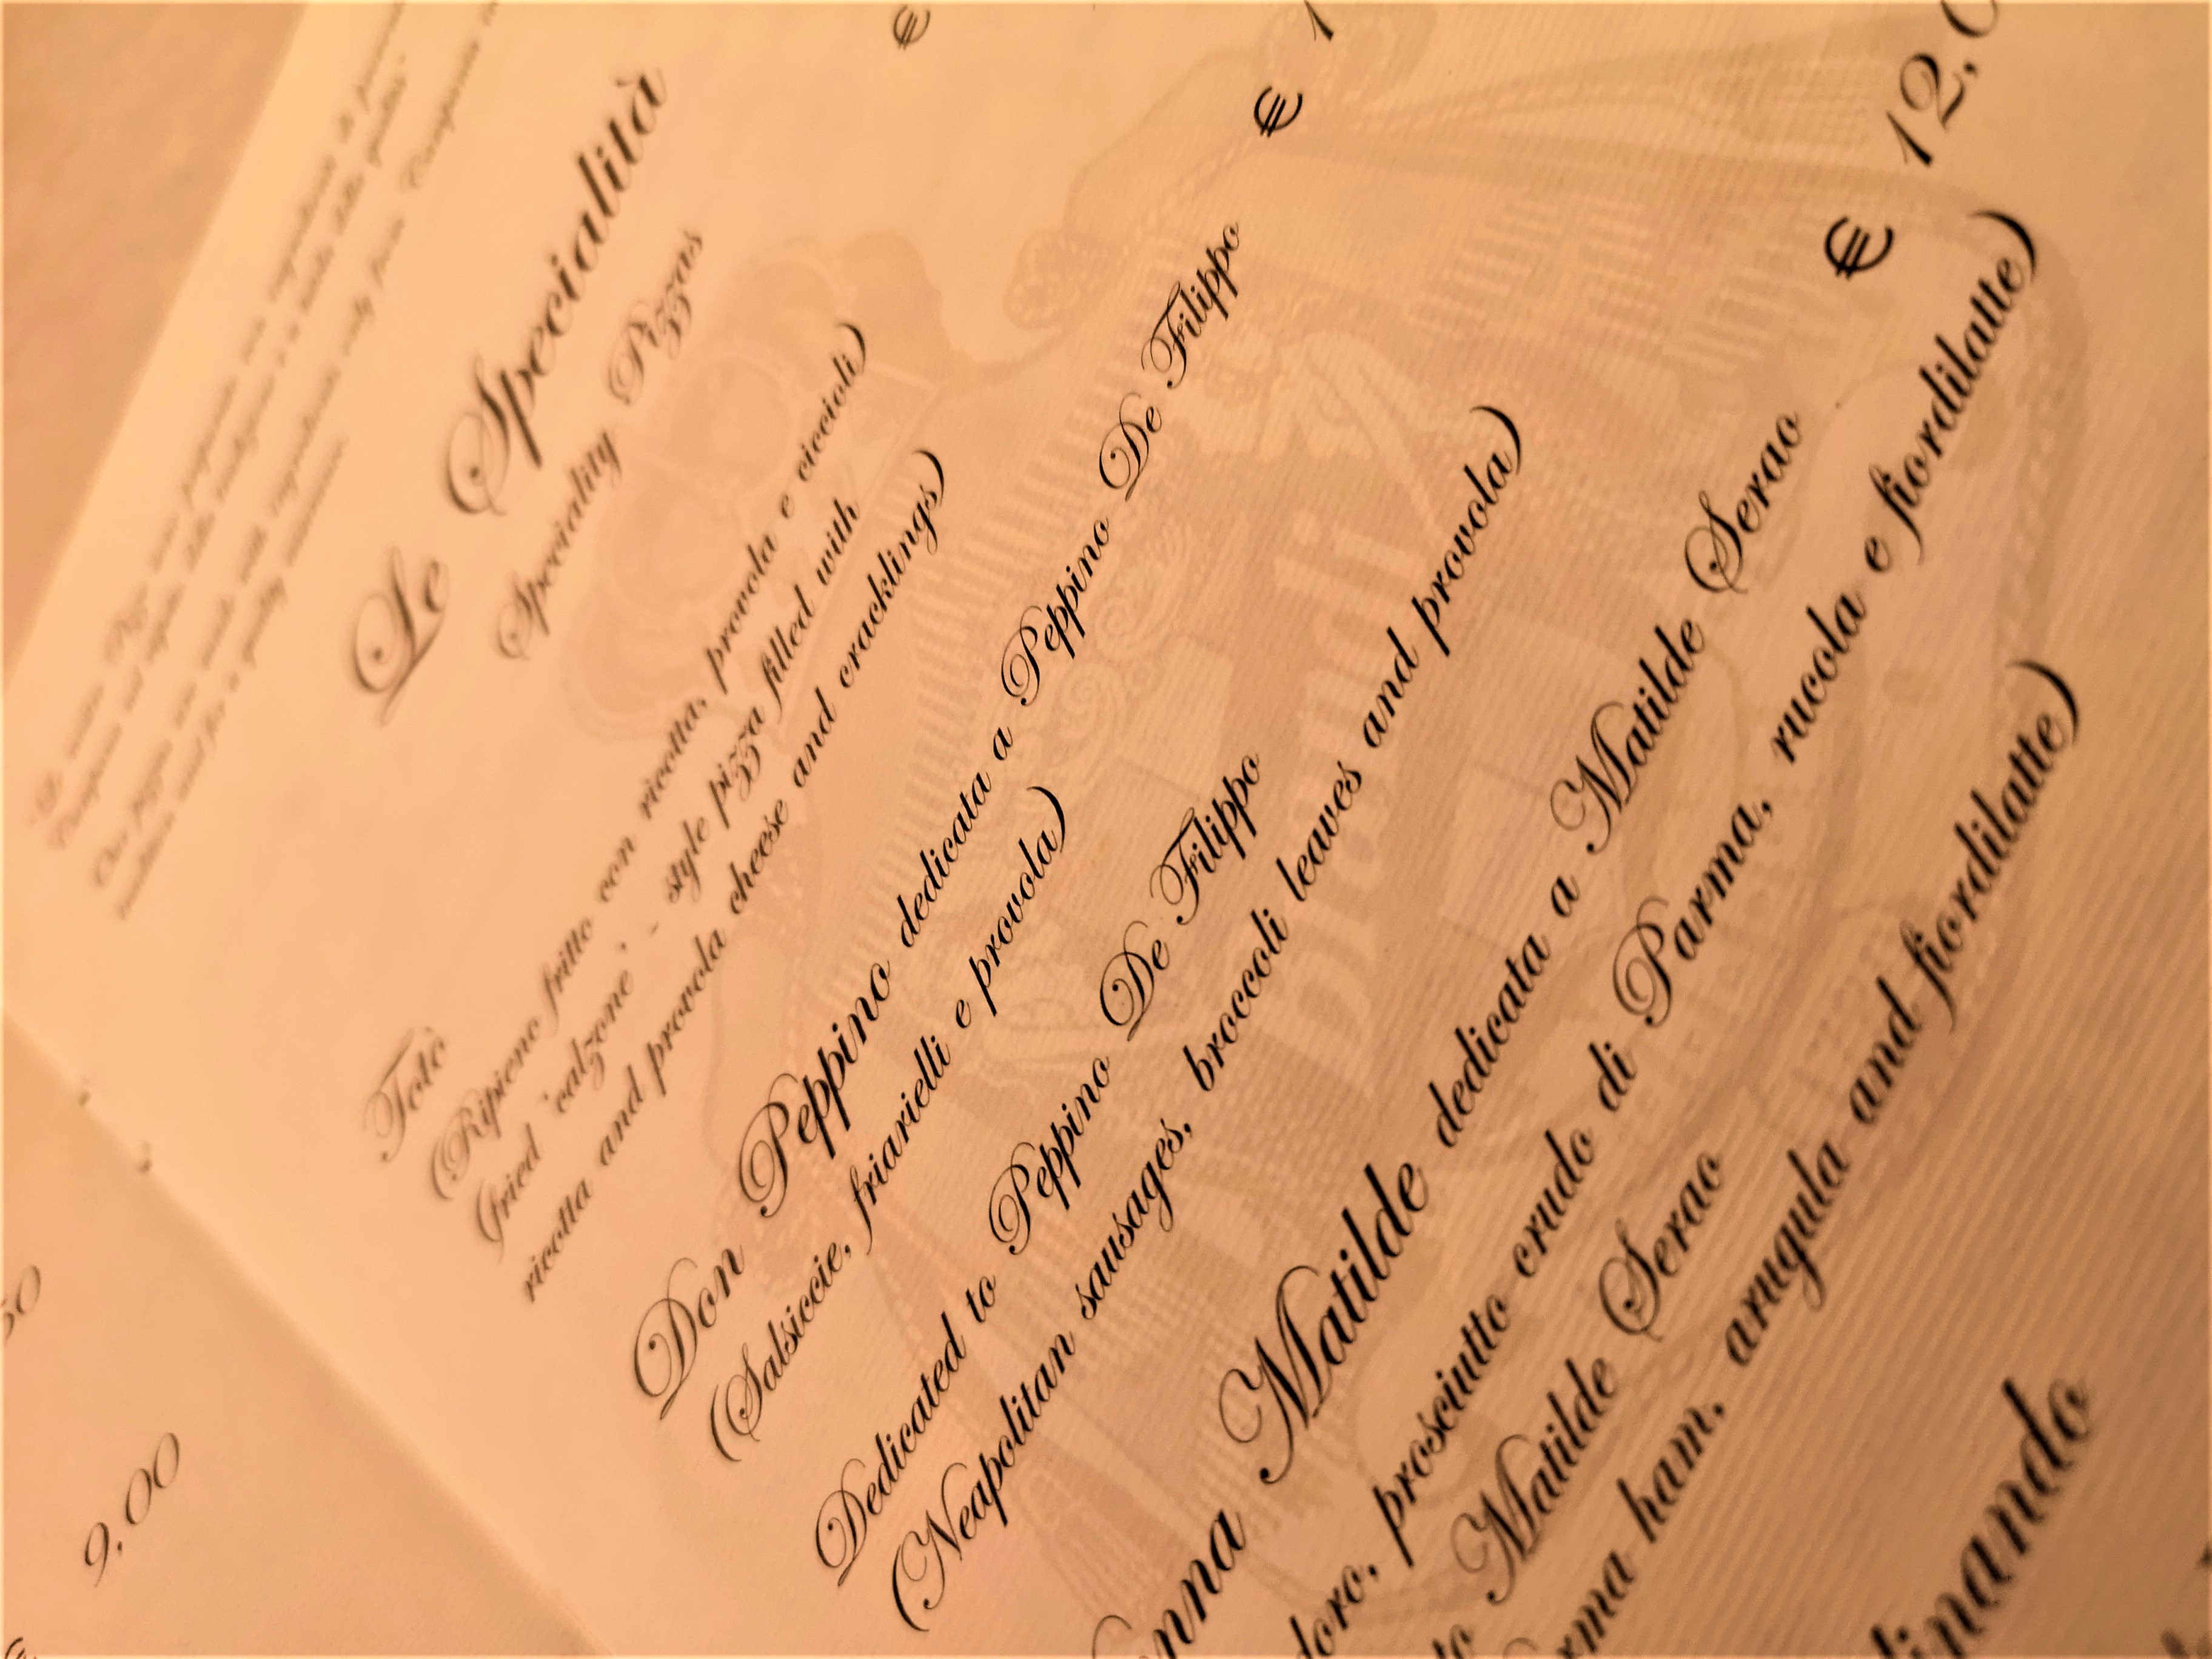 Le Specialità
Speciality Pizzas
€
Totò
(Ripieno fritto con ricotta, provola e ciccioli)
(fried 'calzone' - style pizza filled with
ricotta and provola cheese and cracklings)
€ 1
Don Peppino dedicata a Peppino De Filippo
(Salsiccie, friarielli e provola)
Dedicated to Peppino De Filippo
(Neapolitan sausages, broccoli leaves and provola)
€ 12,0
nna Matilde dedicata a Matilde Serao
doro, prosciutto crudo di Parma, rucola e fiordilatte)
to Matilde Serao
rma ham, arugula and fiordilatte)
dinando
50
9,00
€